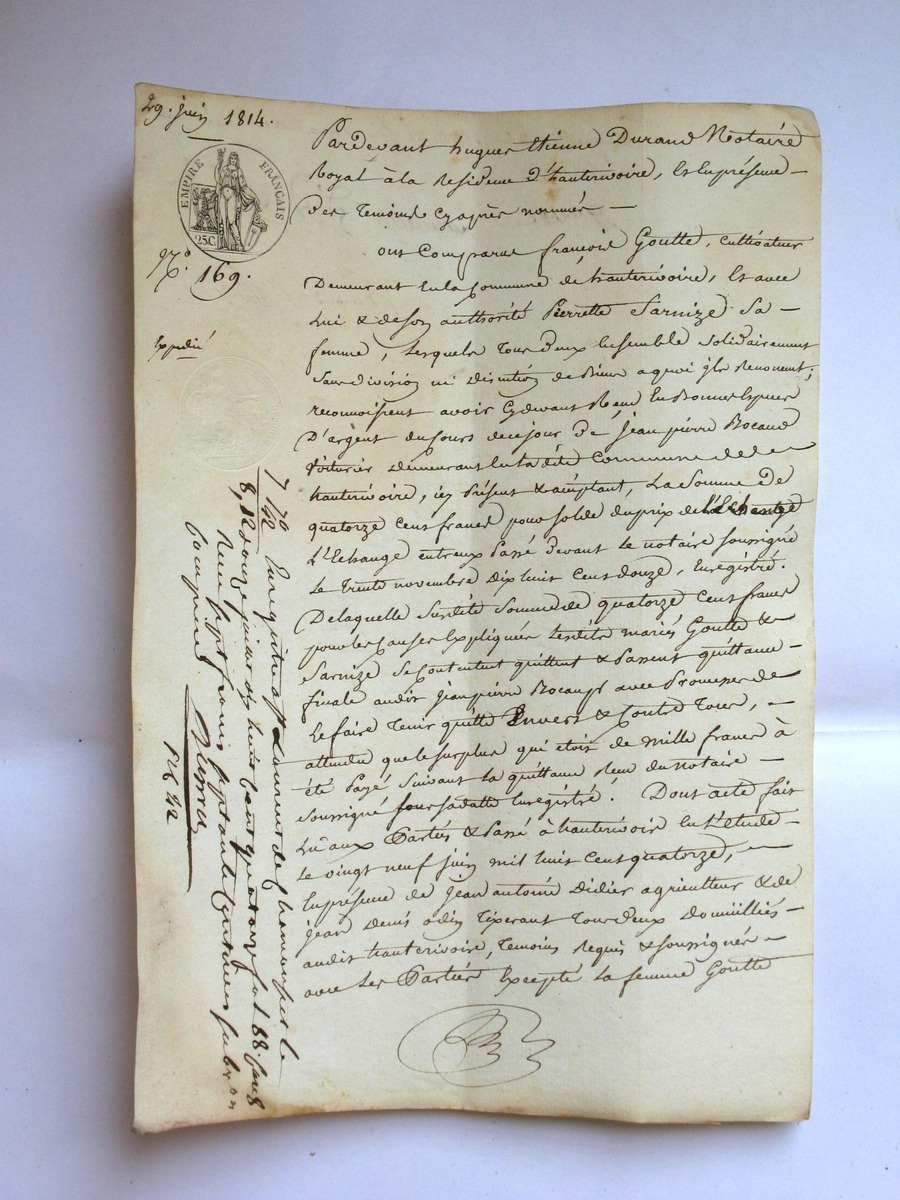 29. juin 1814.
EMPIRE FRANÇAIS
25.C.
N.o
169.
Expedié
Pardevant hugues etienne Durand Notaire
Royal à la Residence d'hauterivoire, Et En présence
des temoins cy après nommés
ont Comparus françois Goutte, cultivateur
Demeurant En la Commune de hauterivoire, Et avec
Lui & de son authorité Pierrette Sarnize Sa
femme, Lesquels tous deux Ensemble Solidairement
Sans division ni discution de Biens a quoi ils Renoncent;
reconnoissent avoir Cydevant Reçu En Bonnes Especes
D'argent du Cours de ce jour de Jean pierre Rocaud
Voiturier Demeurant En la dite Commune de
hauterivoire, icy Présent & acceptant, La Somme De
quatorze Cens francs pour solde du prix de
L'Echange entreux Passé Devant Le notaire soussigné
Le trente novembre dix huit Cens douze, Enregistré.
De laquelle Susdite Somme de quatorze Cens francs
pour les Causes Expliquées Lesdits mariés Goutte &
Sarnize Se Contentent quittent & Passent quittance
finale audit Jean pierre Rocaud avec Promesse de
Le faire tenir quitte Envers & Contre tous,
attendu que le surplus qui etoit de Mille francs à
été Payé Suivant La quittance Reçu du Notaire
soussigné sous sa datte Enregistré. Dont acte fait
Lû aux Parties & Passé à hauterivoire En L'etude
Le vingt neuf juin mil huit Cens quatorze,
En présence de Jean antoine Didier agriculteur & de
Jean Denis odin tixerant tous deux Domiciliés
audit hauterivoire, temoins Requis & soussignés
avec Les Parties Excepté La femme Goutte
7 70
8,
Enregistré à St Laurent de Chamousset le
douze juillet dix huit cent quatorze fol 88.
Reçu sept francs soixante dix centimes subvon
compris.